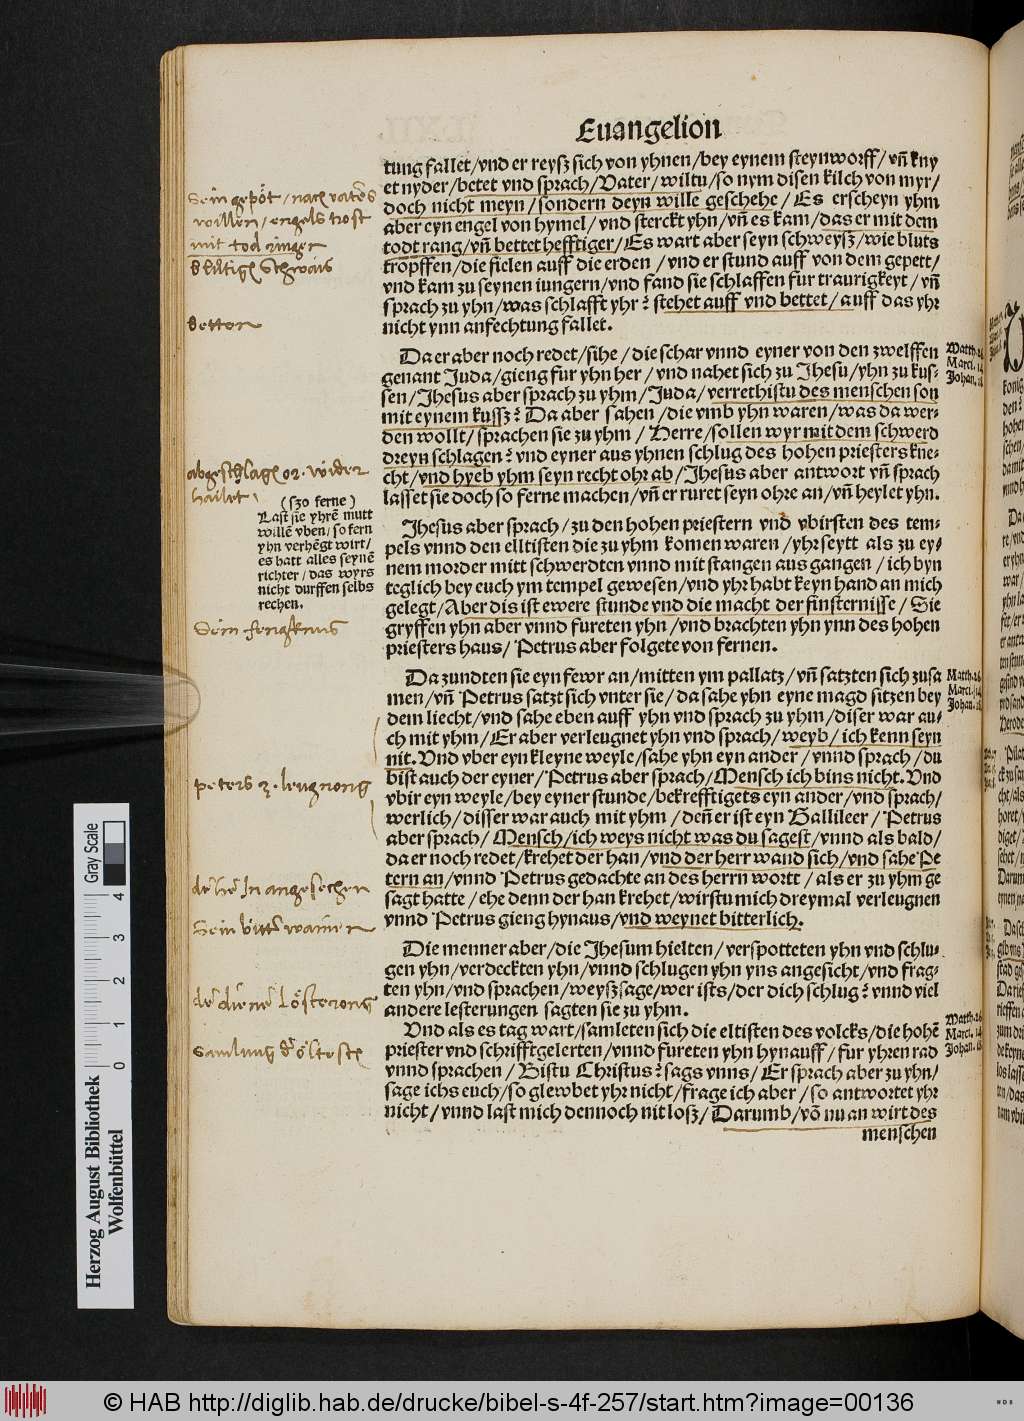 Euangelion
tung fallet/vnd er reysz sich von yhnen/bey eynem steynworff/vñ kny
et nyder/betet vnd sprach/Vater/wiltu/so nym disen kilch von myr/
doch nicht meyn/sondern deyn wille geschehe/Es erscheyn yhm
aber eyn engel von hymel/vnd sterckt yhn/vñ es kam/das er mit dem
todt rang/vñ bettet hefftiger/Es wart aber seyn schweysz/wie bluts
tropffen/die fielen auff die erden/vnd er stund auff von dem gepett/
vnd kam zu seynen iungern/vnd fand sie schlaffen fur traurigkeyt/vñ
sprach zu yhn/was schlafft yhr? stehet auff vnd bettet/auff das yhr
nicht ynn anfechtung fallet.
Sein gepöt/nach vaters
willen/engels trost
mit tod ringer
betten
Da er aber noch redet/sihe/die schar vnnd eyner von den zwelffen
genant Juda/gieng fur yhn her/vnd nahet sich zu Jhesu/yhn zu kus-
sen/Jhesus aber sprach zu yhm/Juda/verrethistu des menschen son
mit eynem kussz? Da aber sahen/die vmb yhn waren/was da wer-
den wollt/sprachen sie zu yhm/Herre/sollen wyr mit dem schwerd
dreyn schlagen? vnd eyner aus yhnen schlug des hohen priesters kne-
cht/vnd hyeb yhm seyn recht ohr ab/Jhesus aber antwort vñ sprach
lasset sie doch so ferne machen/vñ er ruret seyn ohre an/vñ heylet yhn.
Matth. 26
Marci. 14
Johan. 18
(szo ferne)
Last sie yhrē mutt
willē vben/so fern
yhn verhēgt wirt/
es hatt alles seynē
richter/das wyrs
nicht durffen selbs
rechen.
Jhesus aber sprach/zu den hohen priestern vnd vbirsten des tem-
pels vnnd den elltisten die zu yhm komen waren/yhr seytt als zu ey-
nem morder mitt schwerdten vnnd mit stangen aus gangen/ich byn
teglich bey euch ym tempel gewesen/vnd yhr habt keyn hand an mich
gelegt/Aber dis ist ewere stunde vnd die macht der finsternisse/Sie
gryffen yhn aber vnnd fureten yhn/vnd brachten yhn ynn des hohen
priesters haus/Petrus aber folgete von fernen.
Da zundten sie eyn fewr an/mitten ym pallatz/vñ satzten sich zusa
men/vñ Petrus satzt sich vnter sie/da sahe yhn eyne magd sitzen bey
dem liecht/vnd sahe eben auff yhn vnd sprach zu yhm/diser war au-
ch mit yhm/Er aber verleugnet yhn vnd sprach/weyb/ich kenn seyn
nit. Vnd vber eyn kleyne weyle/sahe yhn eyn ander/vnnd sprach/du
bist auch der eyner/Petrus aber sprach/Mensch ich bins nicht. Vnd
vbir eyn weyle/bey eyner stunde/bekrefftigets eyn ander/vnd sprach/
werlich/disser war auch mit yhm/deñ er ist eyn Gallileer/Petrus
aber sprach/Mensch/ich weys nicht was du sagest/vnnd als bald/
da er noch redet/krehet der han/vnd der herr wand sich/vnd sahe Pe
tern an/vnnd Petrus gedachte an des herrn wortt/als er zu yhm ge
sagt hatte/ehe denn der han krehet/wirstu mich dreymal verleugnen
vnnd Petrus gieng hynaus/vnd weynet bitterlich.
Matth. 26
Marci. 14
Johan. 18
Die menner aber/die Jhesum hielten/verspotteten yhn vnd schlu-
gen yhn/verdeckten yhn/vnnd schlugen yhn yns angesicht/vnd frag-
ten yhn/vnd sprachen/weyszsage/wer ists/der dich schlug? vnnd viel
andere lesterungen sagten sie zu yhm.
Vnd als es tag wart/samleten sich die eltisten des volcks/die hohē
priester vnd schrifftgelerten/vnnd fureten yhn hynauff/fur yhren rad
vnnd sprachen/Bistu Christus? sags vnns/Er sprach aber zu yhn/
sage ichs euch/so glewbet yhr nicht/frage ich aber/so antwortet yhr
nicht/vnnd last mich dennoch nit losz/Darumb/vō nu an wirt des
menschen
Matth. 26
Marci. 14
Johan. 18
Gray Scale
0 1 2 3 4
Herzog August Bibliothek
Wolfenbüttel
© HAB http://diglib.hab.de/drucke/bibel-s-4f-257/start.htm?image=00136